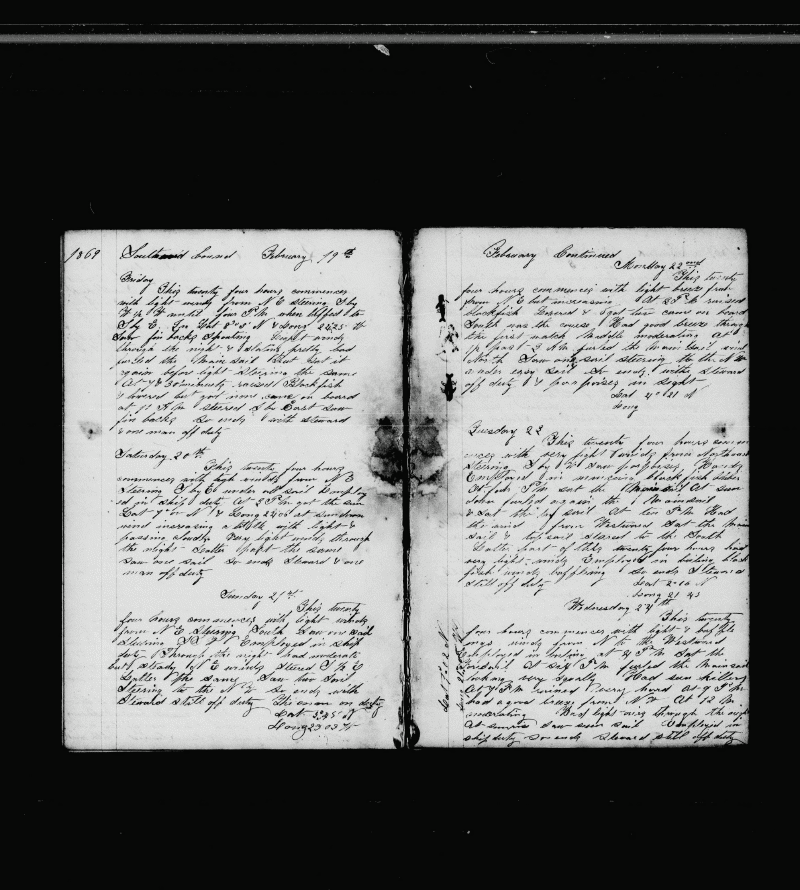 1869 Southward bound February 19th
Friday
This twenty four hours commences
with light winds from N E steering S by
W ½ W until four P.M when luffed to
S by E. In Lat 8°05' N & Long 24 25 W
Saw fin backs Spouting light winds
through the night & latter pretty
furled the Main sail But set it
again before light steering the same
At 7 & 30 minutes raised Blackfish
& lowered but got none came on board
at 11 A.M. steered S by East saw
fin backs So ends with steward
& one man off duty
Saturday 20th
This twenty four hours
commences with light winds from N E
Steering S by E under all sail Employ
ed in ship duty At 2 P.M got the sun
Lat 7° N & Long 24 05 at sundown
wind increasing a little with light &
passing clouds Very light winds through
the night Latter part the same
Saw one sail So ends Steward & one
man off duty
Sunday 21st
This twenty
four hours commences with light winds
from N E Steering South Saw one sail
Steering Employed in ship
duty Through the night had moderate
but steady N E winds Steered S ½ E
Latter the same Saw two Sail
Steering to the N E So ends with
Steward still off duty The man on duty
Lat 5 45 N
Long 23 03 W
February Continued
Monday 22nd
This twenty
four hours commences with light breeze from
from N E but increasing At 2 P.M raised
blackfish lowered & got two came on board
South was the course Had good breeze through
the first watch Middle moderating At
½ past 3 A M furled the Main Sail wind
North Saw one sail steering to the N W
under easy sail So ends with Steward
off duty & porpoises in sight
Lat 4° 21 N
Long
Tuesday 23
This twenty four hours comm
ences with very light winds from Northeast
Steering S by E Saw porpoises Hands
Employed in mincing blackfish blubber
At four P.M sat the Main sail At sun
down furled again the Mainsail
& Sat the try sail At ten P.M Had
the wind from Westward Sat the Main
sail & top sail steered to the South
Latter part of this twenty four hours had
very light winds Employed in boiling black
fish winds baffling So ends Steward
still off duty Lat 2-16 N
Long 21 43
Wednesday 24th
This twenty
four hours commences with light & baffle
ings winds from N to the Westward
Employed in boiling At 4 P.M Sat the
At six P.M furled the Mainsail
looking very Squally Had saw killers
At 7 P.M rained very hard At 9 P.M
had a good breeze from N W At 12 M
moderating Had light airs through the night
At sunrise saw one sail Employed in
ship duty So ends Steward still off duty